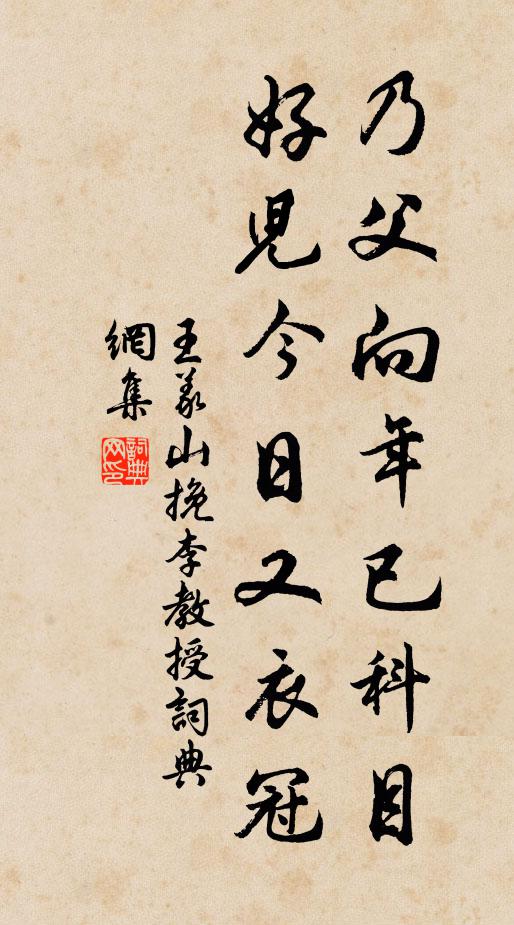 乃父向年已科目
好児今日又衣冠
王義山挽李教授詞典
網集
詞典网印